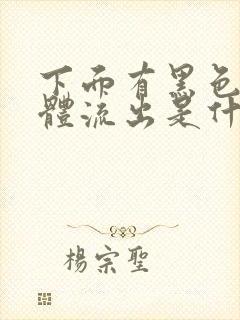 下面有黑色
體流出是什
楊宗聖